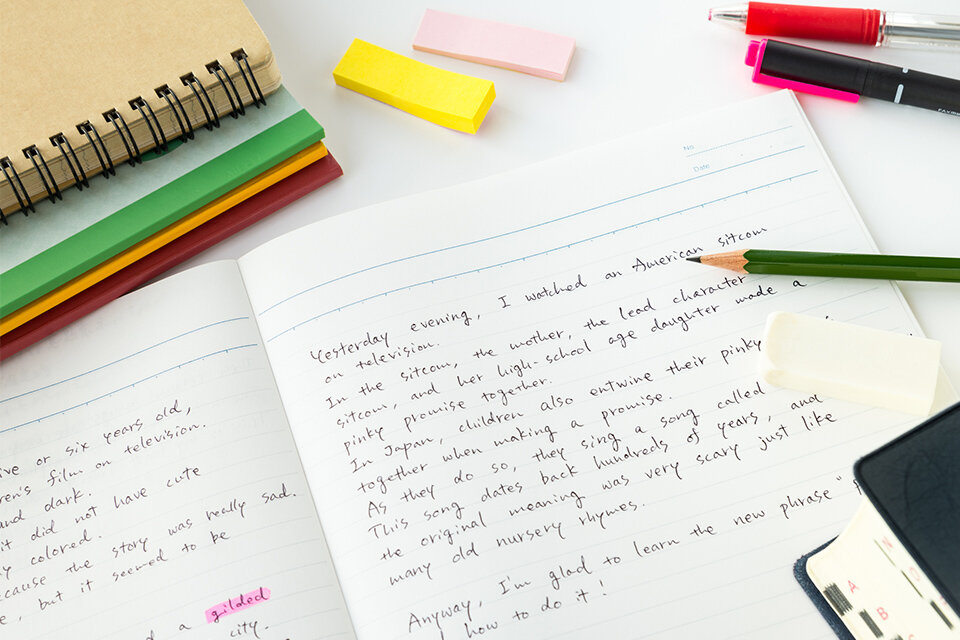 ive or six years old,
ren's film on television.
and dark.
it did not have cute
y colored.
ecause the story was really sad.
e, but it seemed to be
d a gilded
city.
No.
Date
Yesterday evening, I watched an American sitcom
on television.
In the sitcom, the mother, the lead character
sitcom, and her high-school age daughter made a
pinky promise together.
In Japan, children also entwine their pinky
together when making a promise.
As they do so, they sing a song called
This song dates back hundreds of years, and
the original meaning was very scary just like
many old nursery rhymes.
Anyway, I'm glad to learn the new phrase "
how to do it!
N
A
B